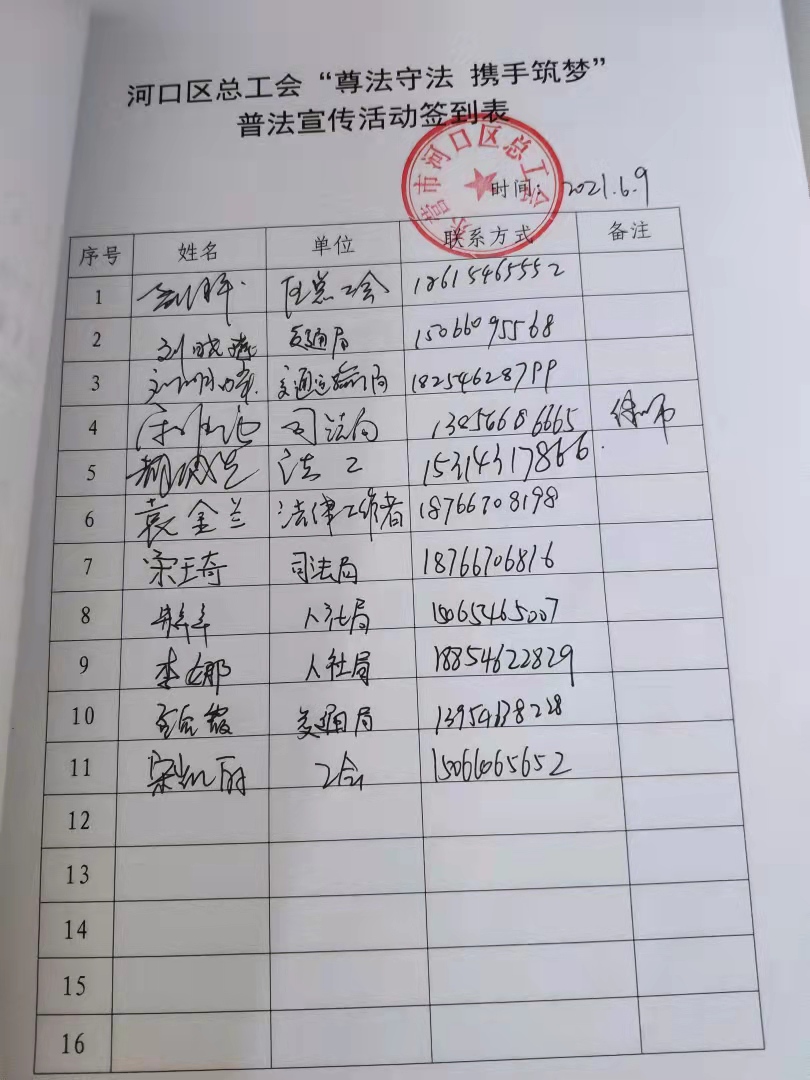 河口区总工会“尊法守法 携手筑梦”
普法宣传活动签到表
河口区总工会
时间: 2021.6.9
序号 姓名 单位 联系方式 备注
1 区总工会 18615465552
2 刘晓燕 交通局 15066095568
3 交通运输局 18254628799
4 司法局 律师
5 法工 15314317866
6 袁金兰 法律工作者 18766708198
7 宋王琦 司法局 18766706816
8 人社局 15065465007
9 李娜 人社局 18854622829
10 交通局
11 宋凯丽 工会
12
13
14
15
16